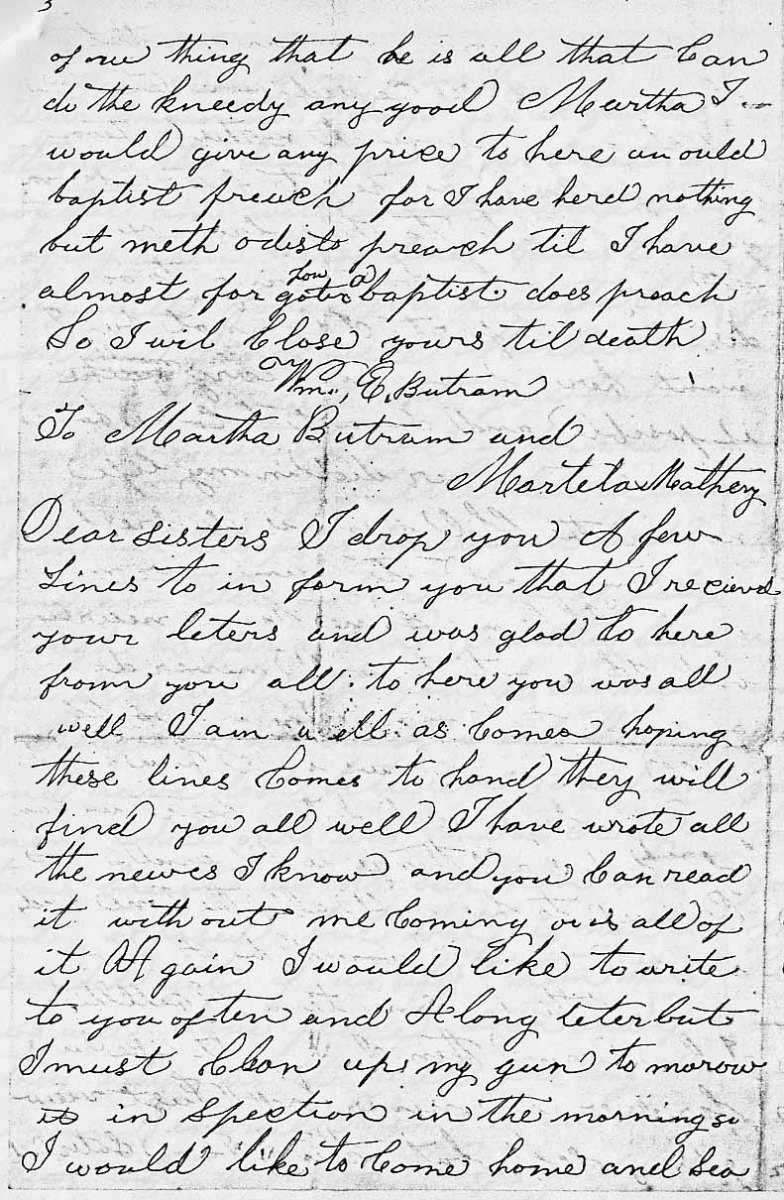 3
of one thing that he is all that Can
do the kneedy any good Martha I
would give any price to here an ould
baptist preach for I have herd nothing
but meth odists preach til I have
almost for goten how a baptist does preach
So I wil Close yours til death
Wm. E. Butram
To Martha Butram and
Martela Mathery
Dear Sisters I drop you A few
Lines to in form you that I recieved
your leters and was glad to here
from you all. to here you was all
well I am well as Comes hoping
these lines Comes to hand they will
find you all well I have wrote all
the newes I know and you Can read
it with out me Coming is all of
it Again I would like to write
to you of ten and A long leter but
I must Clean up my gun to morow
is in spection in the morning so
I would like to Come home and sea